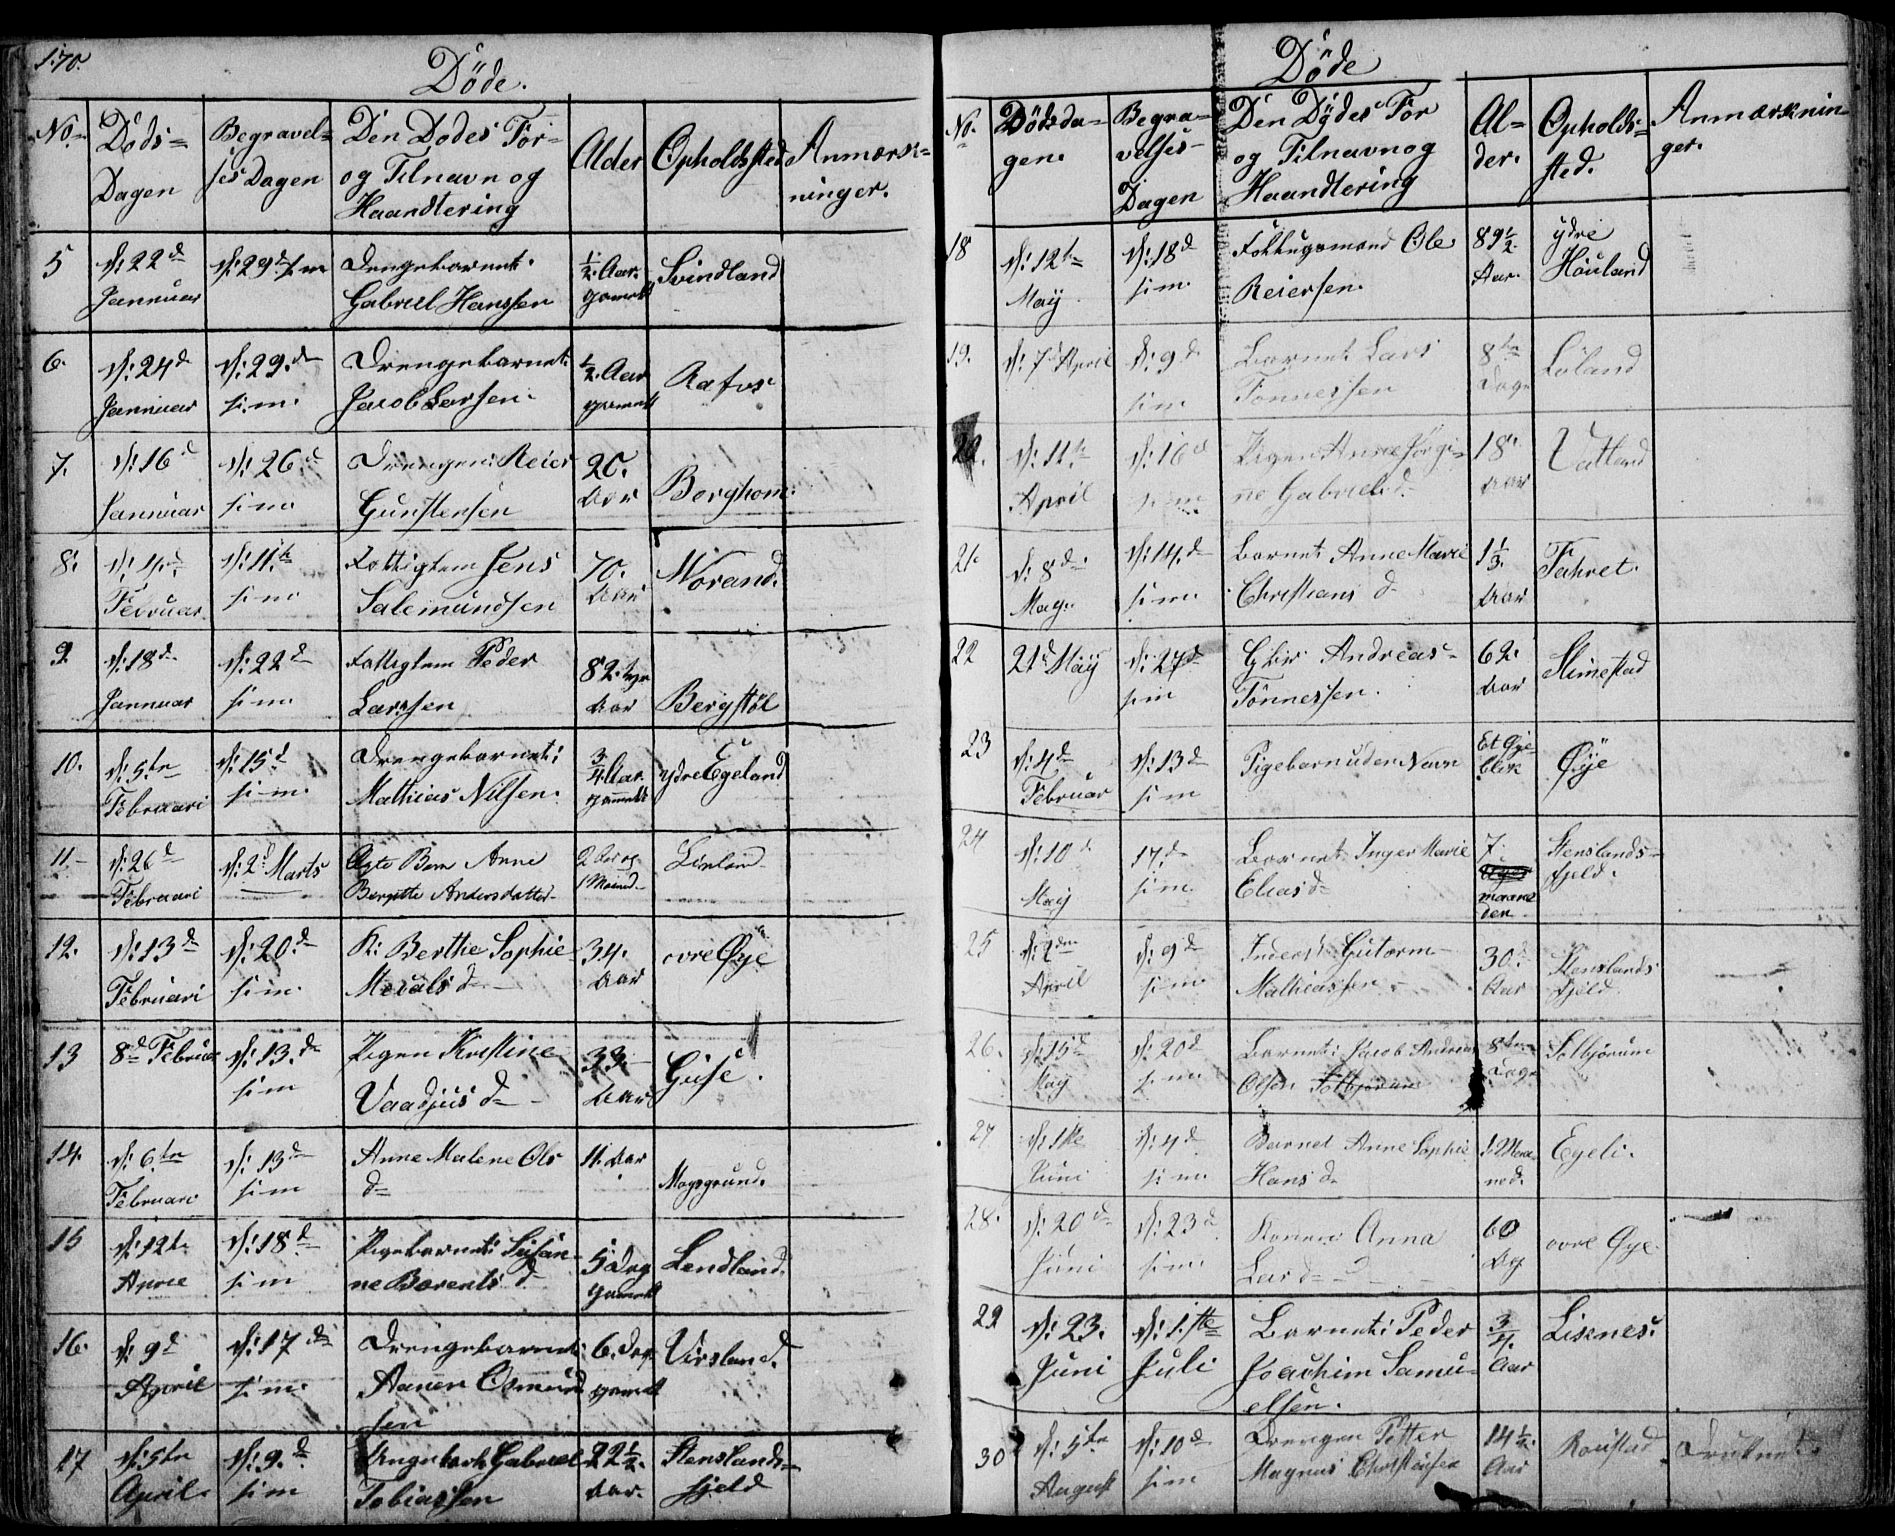 170.
Döde.
No.
Döds=
Dagen
Begravel=
ses Dagen
Den Dödes For=
og Tilnavn og
Haandtering
Alder
Opholdsted
Anmærk=
ninger.
5
d: 22d
Januar
d: 29d s. m
Drengebarnet
Gabriel Hanssen
½ Aar
gammelt
Svindland
6.
d: 24d
Januar
d: 29d
s. m.
Drengebarnet
Jacob Larsen
½ Aar
gammelt
Rafos
7.
d: 16d
Januar
d: 26d
s. m.
Drengen Reier
Gunstensen
20.
Aar
8.
Februar
d: 11te
s. m.
Fattiglem Jens
Salemundsen
70.
Aar
9.
d: 18d
Januar
d: 22d
s. m.
Fattiglem Peder
Larssen
82.
Aar
Bergstöl
10.
d: 5te
Februari
d: 15d
s. m.
Drengebarnet
Mathias Nilsen.
¾ Aar
gammelt
ydre Egeland
11.
d: 26d
Februari
d: 2d Marts
Ægte Barn Anne
Bergitte Andersdatter
2 Aar og
1 Maaned
12.
d: 13d
Februari
d: 20d
s. m.
K: Berthe Sophie
d
34.
Aar
ovre Öye
13
8d Februar
d: 13d
s. m
Pigen Kirstine
d
33
Aar
14.
d: 6te
Februari
d: 13d
s. m
Anne Malene Ols
d
11. Aar
15
d: 12te
April
d: 18d
s. m
Pigebarnet Susan=
ne Berents d
5 Dag
gammelt
Lendland.
16.
d: 9d
April
d: 17d
s. m.
Drengebarnet
Aanen Osmund
sen
6. Dage
gammelt
17
d: 5te
April.
d: 9d
s. m
Gabriel
Tobiassen
22½
Aar.
Stenslands=
fjeld
Döde
No.
Dödsda=
gen.
Begra=
velses=
Dagen
Den Dödes For
og Tilnavn og
Haandtering
Al=
der.
Opholds=
sted.
Anmærknin=
ger.
18
d: 12te
May
d: 18d
s. m.
Ole
Reiersen.
89½
Aar.
ydre
Höuland
19.
d: 7d April
d: 9d
s. m
Barnet Lars
Tönnessen
8te
Dage
Löland
20.
d: 11te
April
d: 16d
s. m
Pigen Anne Jörgi=
ne Gabriels d
18
Aar
Vatland
21.
d: 8d
May.
d: 14d
s. m.
Barnet Anne Marie
Christians d
1⅓
Aar
Fahret.
22
21d May
d: 27d
s. m
Andreas
Tönnessen.
62.
Aar
Slimestad
23
d: 4d
Februar
d: 13d
s. m
Pigebarn uden Navn
Et Öye=
blik
Öye
24
d: 10d
May
17d
s. m
Barnet Inger Marie
Elias d
7
maane
der
Stenslands=
fjeld.
25
April
d: 9d
s. m.
Inderst Gutorm
Mathiassen
30
Aar
Stenslands
fjeld
26.
d: 15d
May
d: 20d
s. m.
Barnet Jacob Andreas
Olsen
8te
Dage
27
d: 1ste
Juni
d: 4d
s. m.
Barnet Anne Sophie
Hans d
1. Maa
ned.
Egeli.
28.
d: 20d
Juni
d: 23d
s. m.
Konen Anna
Lars d
60
ovre Öye.
29
d: 23.
Juni
d: 1ste
Juli
Barnet Peder
Joachim Samu=
elsen.
¾
Aar
Lisknes.
30
d: 5te
August
d: 10d
s. m
Drengen Petter
Magnus Christensen
14½
Aar
Druknet